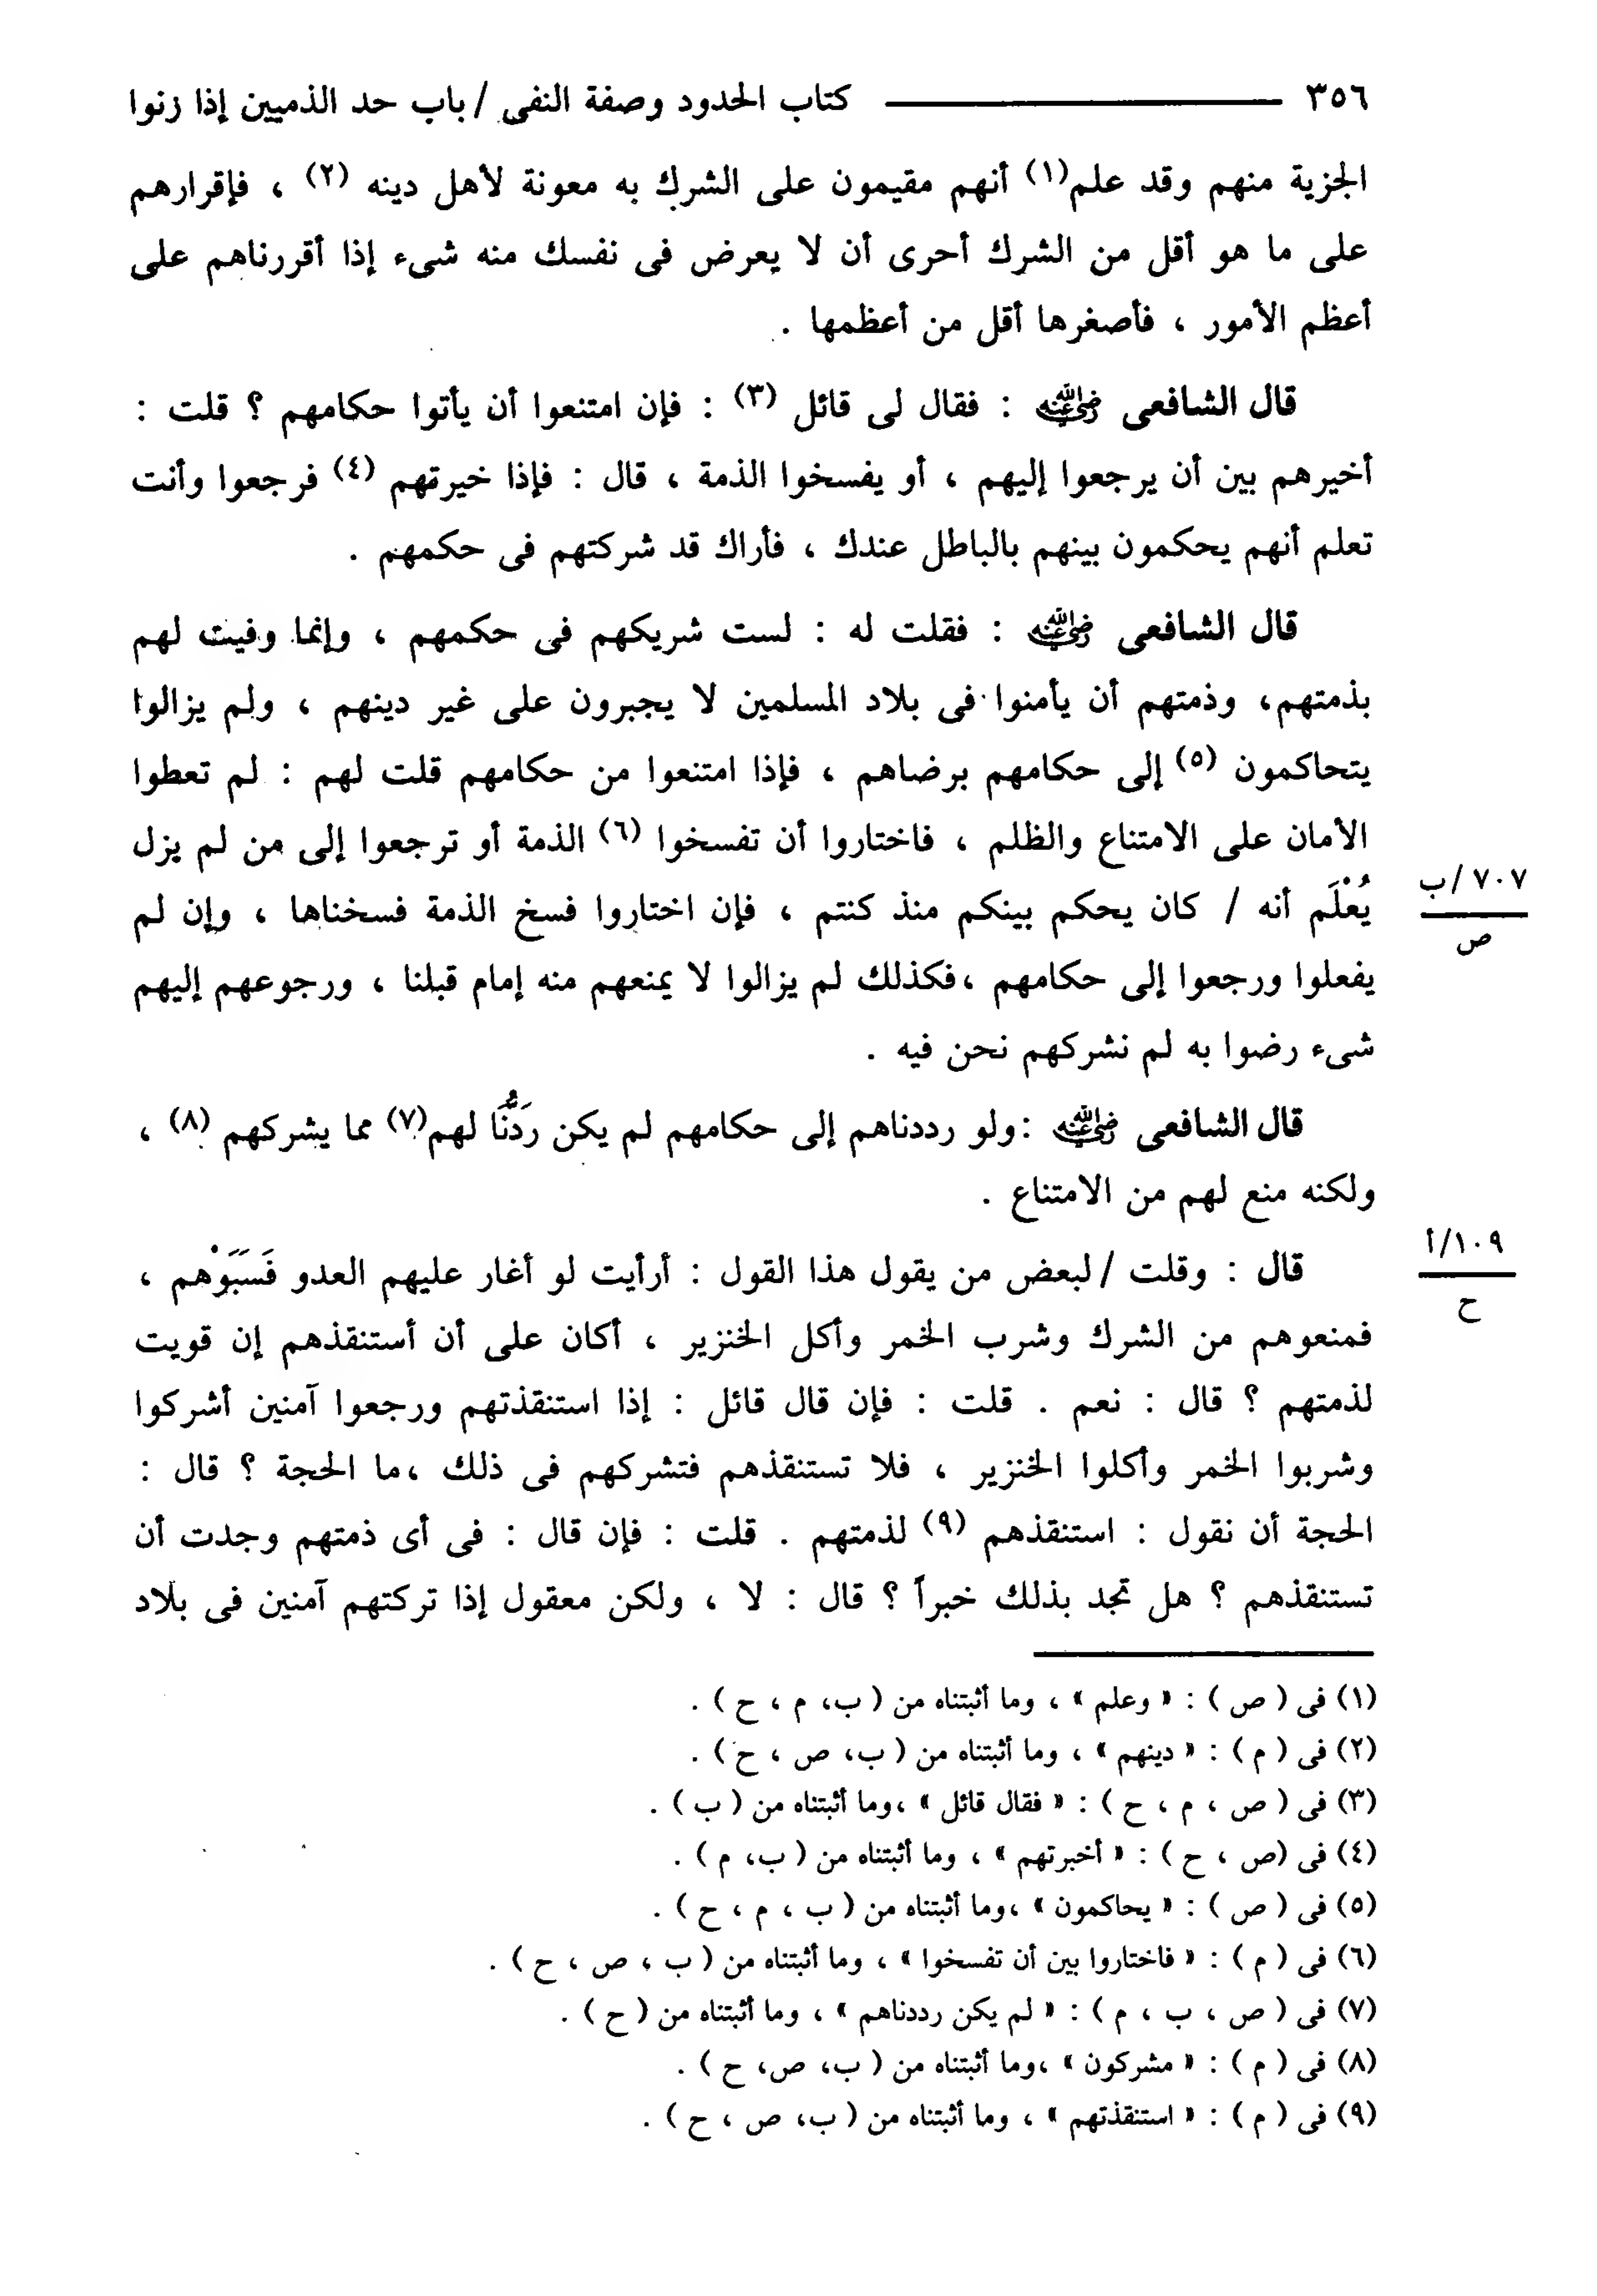 ٣٥٦ ــــــــــــــــــــ كتاب الحدود وصفة النفى / باب حد الذميين إذا زنوا
الجزية منهم وقد علم(١) أنهم مقيمون على الشرك به معونة لأهل دينه (٢) ، فإقرارهم
على ما هو أقل من الشرك أحرى أن لا يعرض فى نفسك منه شىء إذا أقررناهم على
أعظم الأمور ، فأصغرها أقل من أعظمها .
قال الشافعى رضي الله عنه : فقال لى قائل (٣) : فإن امتنعوا أن يأتوا حكامهم ؟ قلت :
أخيرهم بين أن يرجعوا إليهم ، أو يفسخوا الذمة ، قال : فإذا خيرتهم (٤) فرجعوا وأنت
تعلم أنهم يحكمون بينهم بالباطل عندك ، فأراك قد شركتهم فى حكمهم .
قال الشافعى رضي الله عنه : فقلت له : لست شريكهم فى حكمهم ، وإنما وفيت لهم
بذمتهم، وذمتهم أن يأمنوا فى بلاد المسلمين لا يجبرون على غير دينهم ، ولم يزالوا
يتحاكمون (٥) إلى حكامهم برضاهم ، فإذا امتنعوا من حكامهم قلت لهم : لم تعطوا
الأمان على الامتناع والظلم ، فاختاروا أن تفسخوا (٦) الذمة أو ترجعوا إلى من لم يزل
يُعْلَم أنه / كان يحكم بينكم منذ كنتم ، فإن اختاروا فسخ الذمة فسخناها ، وإن لم
٧٠٧/ب
ص
يفعلوا ورجعوا إلى حكامهم ،فكذلك لم يزالوا لا يمنعهم منه إمام قبلنا ، ورجوعهم إليهم
شىء رضوا به لم نشركهم نحن فيه .
قال الشافعى رضي الله عنه :ولو رددناهم إلى حكامهم لم يكن رَدُّنَا لهم(٧) مما يشركهم (٨) ،
ولكنه منع لهم من الامتناع .
قال : وقلت / لبعض من يقول هذا القول : أرأيت لو أغار عليهم العدو فَسَبَوْهم ،
١٠٩/أ
ح
فمنعوهم من الشرك وشرب الخمر وأكل الخنزير ، أكان على أن أستنقذهم إن قويت
لذمتهم ؟ قال : نعم . قلت : فإن قال قائل : إذا استنقذتهم ورجعوا آمنين أشركوا
وشربوا الخمر وأكلوا الخنزير ، فلا تستنقذهم فتشركهم فى ذلك ،ما الحجة ؟ قال :
الحجة أن نقول : استنقذهم (٩) لذمتهم . قلت : فإن قال : فى أى ذمتهم وجدت أن
تستنقذهم ؟ هل تجد بذلك خبراً ؟ قال : لا ، ولكن معقول إذا تركتهم آمنين فى بلاد
(١) فى ( ص ) : « وعلم » ، وما أثبتناه من ( ب، م ، ح ) .
(٢) فى ( م ) : « دينهم » ، وما أثبتناه من ( ب، ص ، ح ) .
(٣) فى ( ص ، م ، ح ) : « فقال قائل » ،وما أثبتناه من ( ب ) .
(٤) فى (ص ، ح ) : « أخبرتهم » ، وما أثبتناه من ( ب، م ) .
(٥) فى ( ص ) : « يحاكمون » ،وما أثبتناه من ( ب ، م ، ح ) .
(٦) فى ( م ) : « فاختاروا بين أن تفسخوا » ، وما أثبتناه من ( ب ، ص ، ح ) .
(٧) فى ( ص ، ب ، م ) : « لم يكن رددناهم » ، وما أثبتناه من ( ح ) .
(٨) فى ( م ) : « مشركون » ،وما أثبتناه من ( ب، ص، ح ) .
(٩) فى ( م ) : « استنقذتهم » ، وما أثبتناه من ( ب، ص ، ح ) .